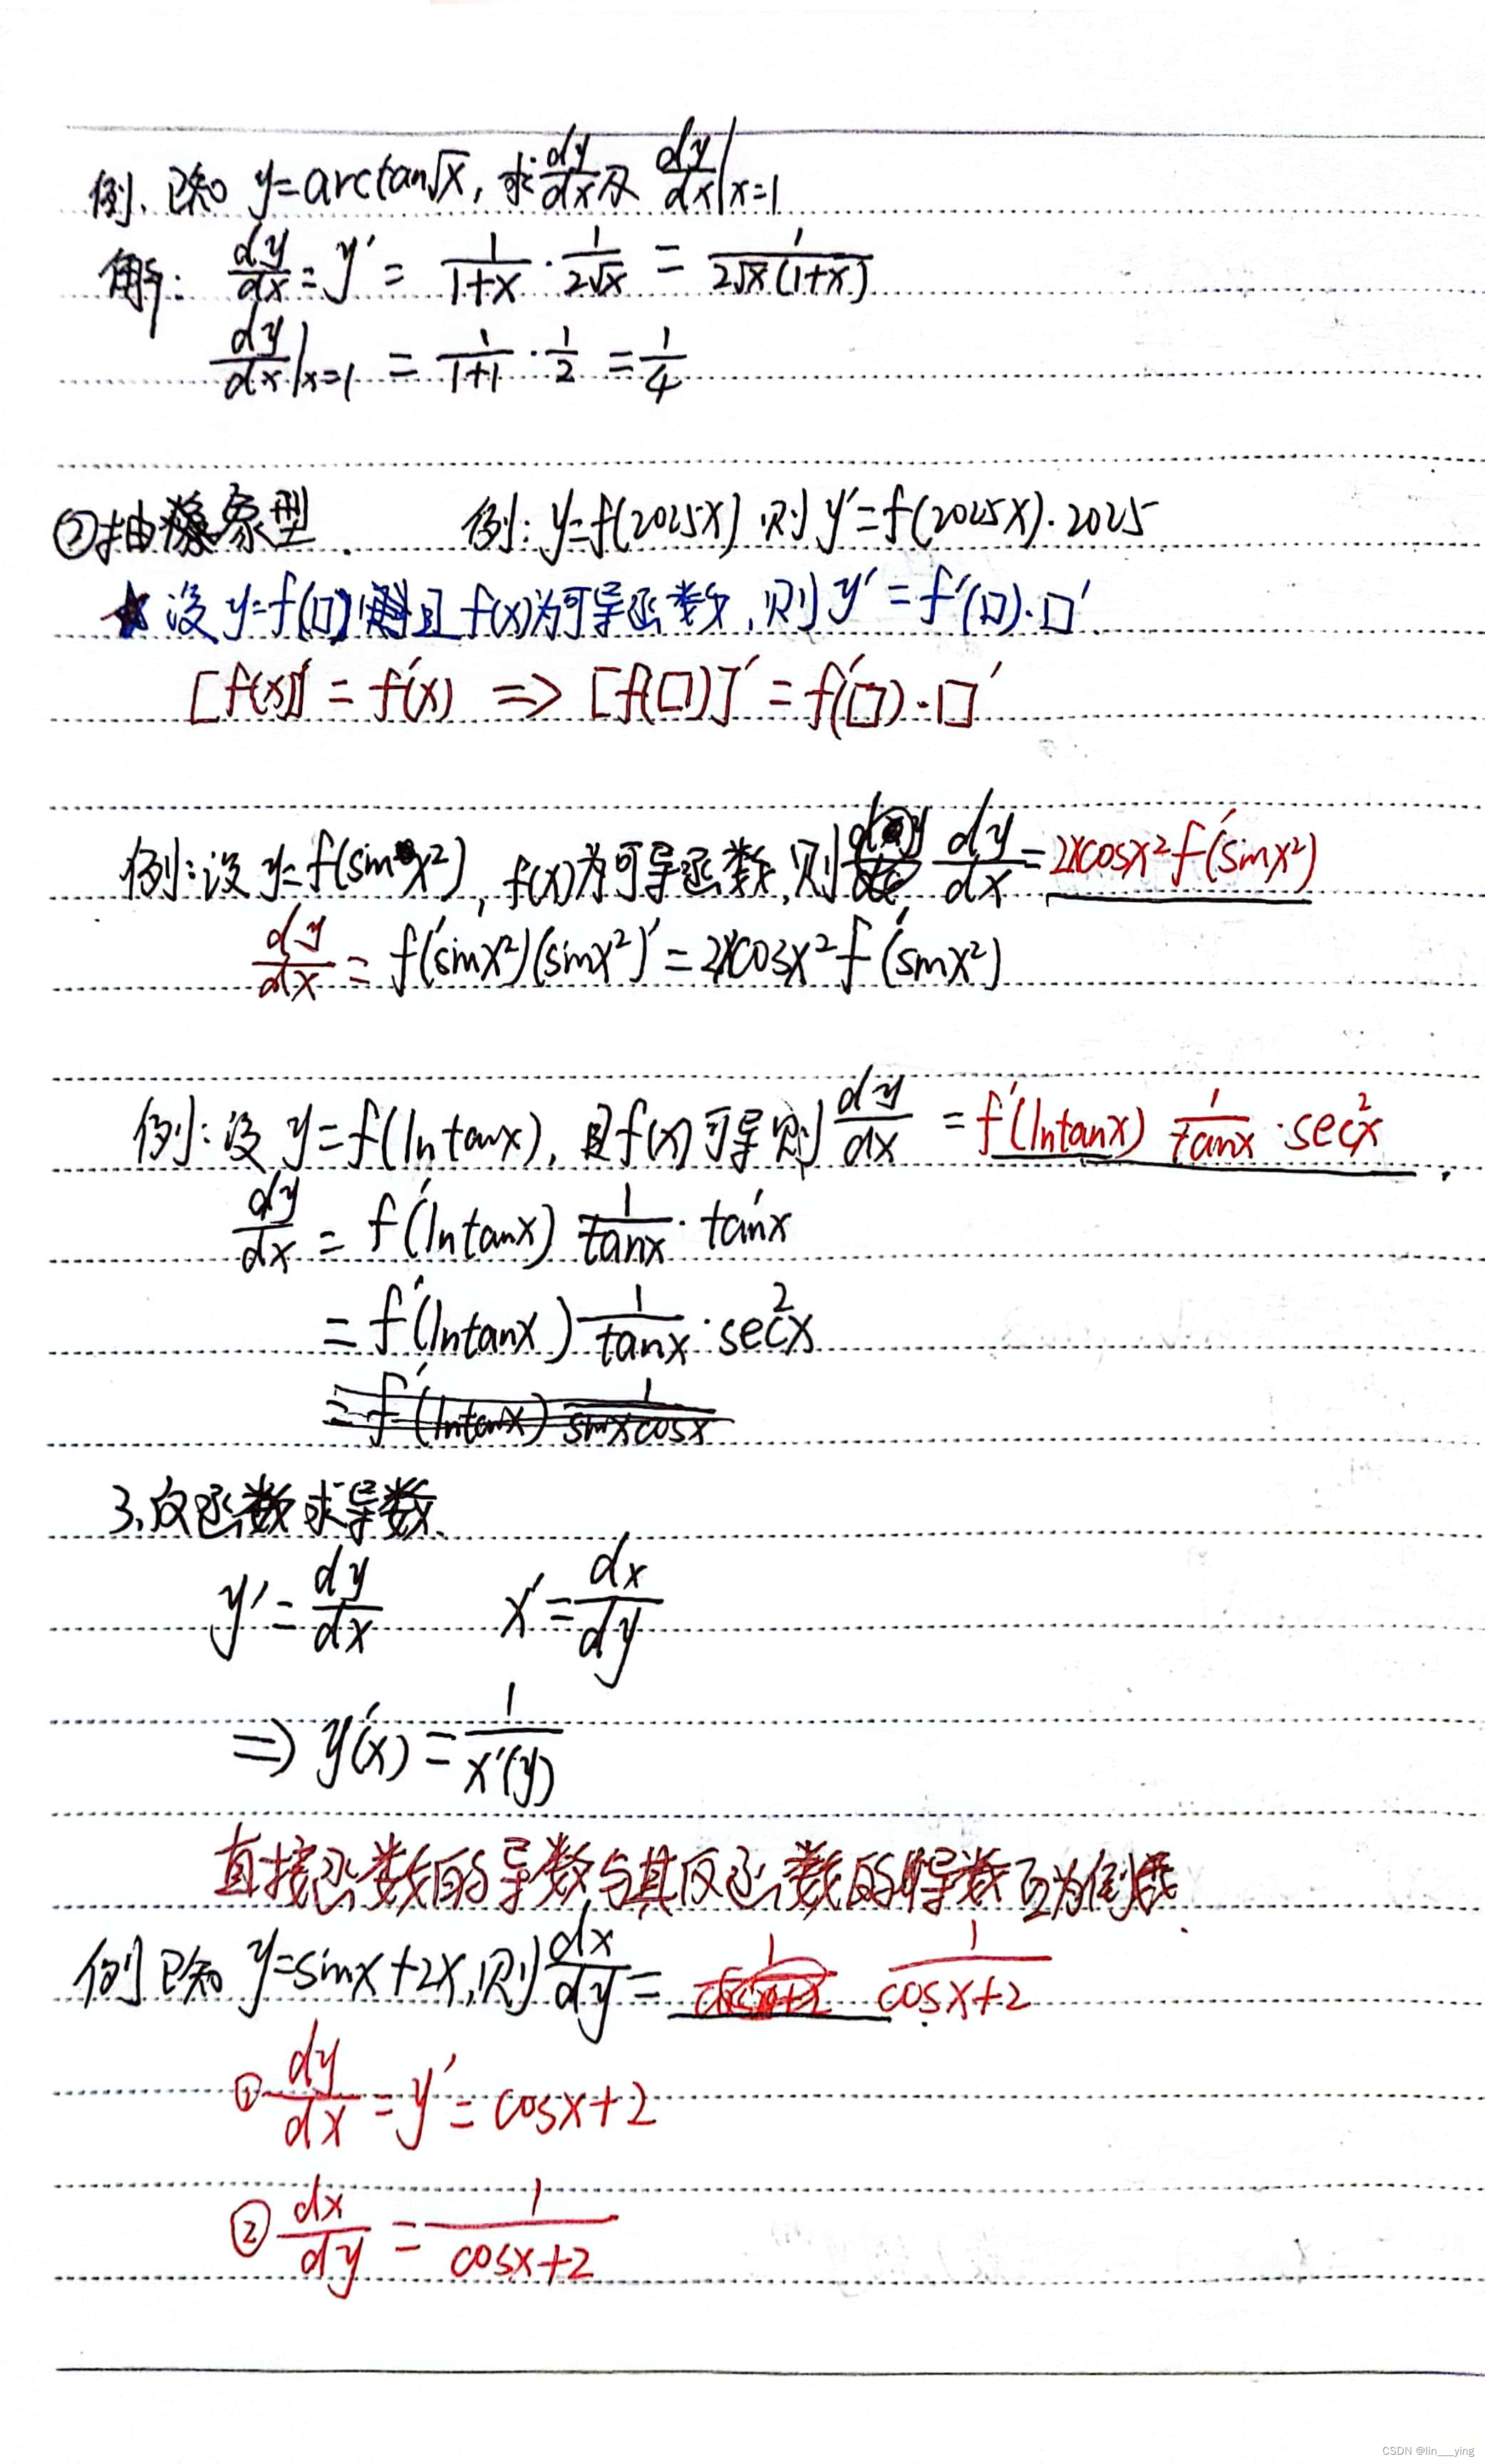 例、已知 y=arctan√x, 求 dy/dx 及 dy/dx|x=1
解: dy/dx = y' = 1/(1+x) · 1/(2√x) = 1/(2√x(1+x))
dy/dx|x=1 = 1/(1+1) · 1/2 = 1/4
②抽象型 例: y=f(2025x) 则 y'=f(2025x)·2025
★ 设 y=f(□) 且 f(x)为可导函数, 则 y' = f'(□)·□'.
[f(x)]' = f'(x) => [f(□)]' = f'(□)·□'
例:设 y=f(sinx²), f(x)为可导函数, 则 dy/dx = 2xcosx²f'(sinx²)
dy/dx = f'(sinx²)(sinx²)' = 2xcosx²f'(sinx²)
例:设 y=f(lntanx), 且f(x)可导 则 dy/dx = f'(lntanx) 1/tanx · sec²x .
dy/dx = f'(lntanx) 1/tanx · tan'x
= f'(lntanx) 1/tanx · sec²x
= f'(lntanx) 1/sinxcosx
3、反函数求导数.
y' = dy/dx x' = dx/dy
=> y'(x) = 1/x'(y)
直接函数的导数与其反函数的导数互为倒数.
例 已知 y=sinx+2x, 则 dx/dy = 1/(cosx+2) .
① dy/dx = y' = cosx+2
② dx/dy = 1/(cosx+2)
CSDN @lin___ying